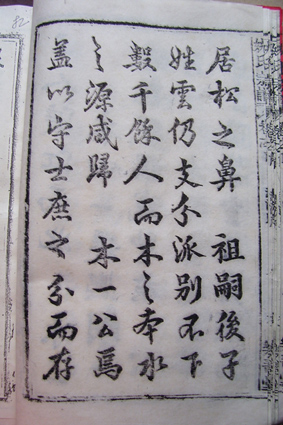 居松之鼻　祖嗣後子
姓雲仍支分派別不下
數千餘人而木之本水
之源咸歸　木一公焉
盖以守士庶之分而存
82